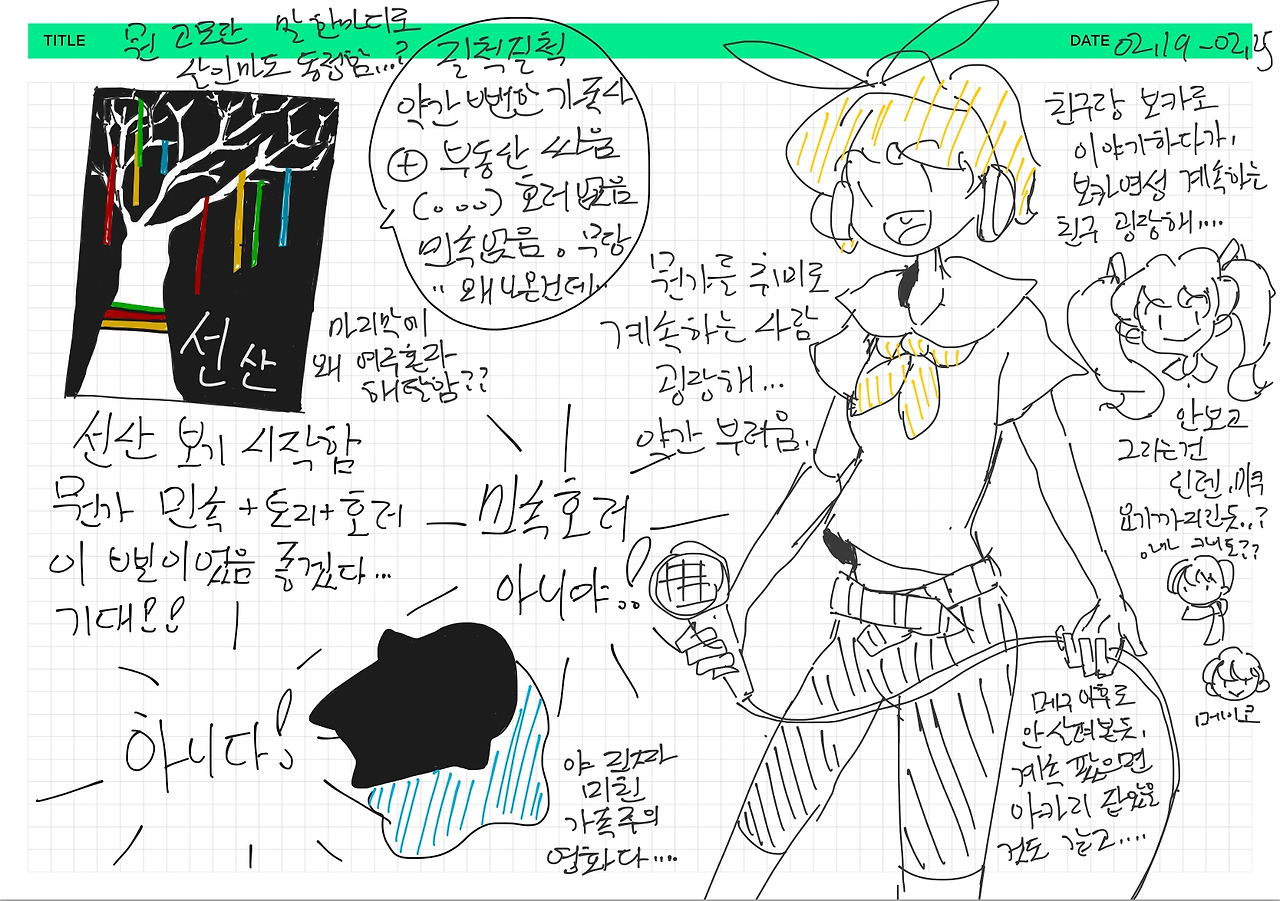 TITLE
DATE 02.19 - 02.25
뭔 고모란 말 한마디로
살인마도 동정함...?
질척질척
약간 뻔한 가족사
+ 부동산 싸움
(...) 호러 없음
민속없음. 무당
왜 나온건데..
선산
마지막에
왜 여주혼라
해탈함??
선산 보기 시작함
뭔가 민속+토리+호러
이 삘이었음 좋겠다...
기대!!
민속호러
아니야..!
아니다!
야 진짜
미친
가족주의
영화다....
뭔가를 취미로
계속하는 사람
굉장해...
약간 부러움.
친구랑 보카로
이야기하다가,
보카여성 계속하는
친구 굉장해....
안보고
그리는건
린렌, 미쿠
요기까지인듯..?
메이코
메구 이후로
안 살펴본듯.
계속 팠으면
아카리 잡았을
것도 같고....